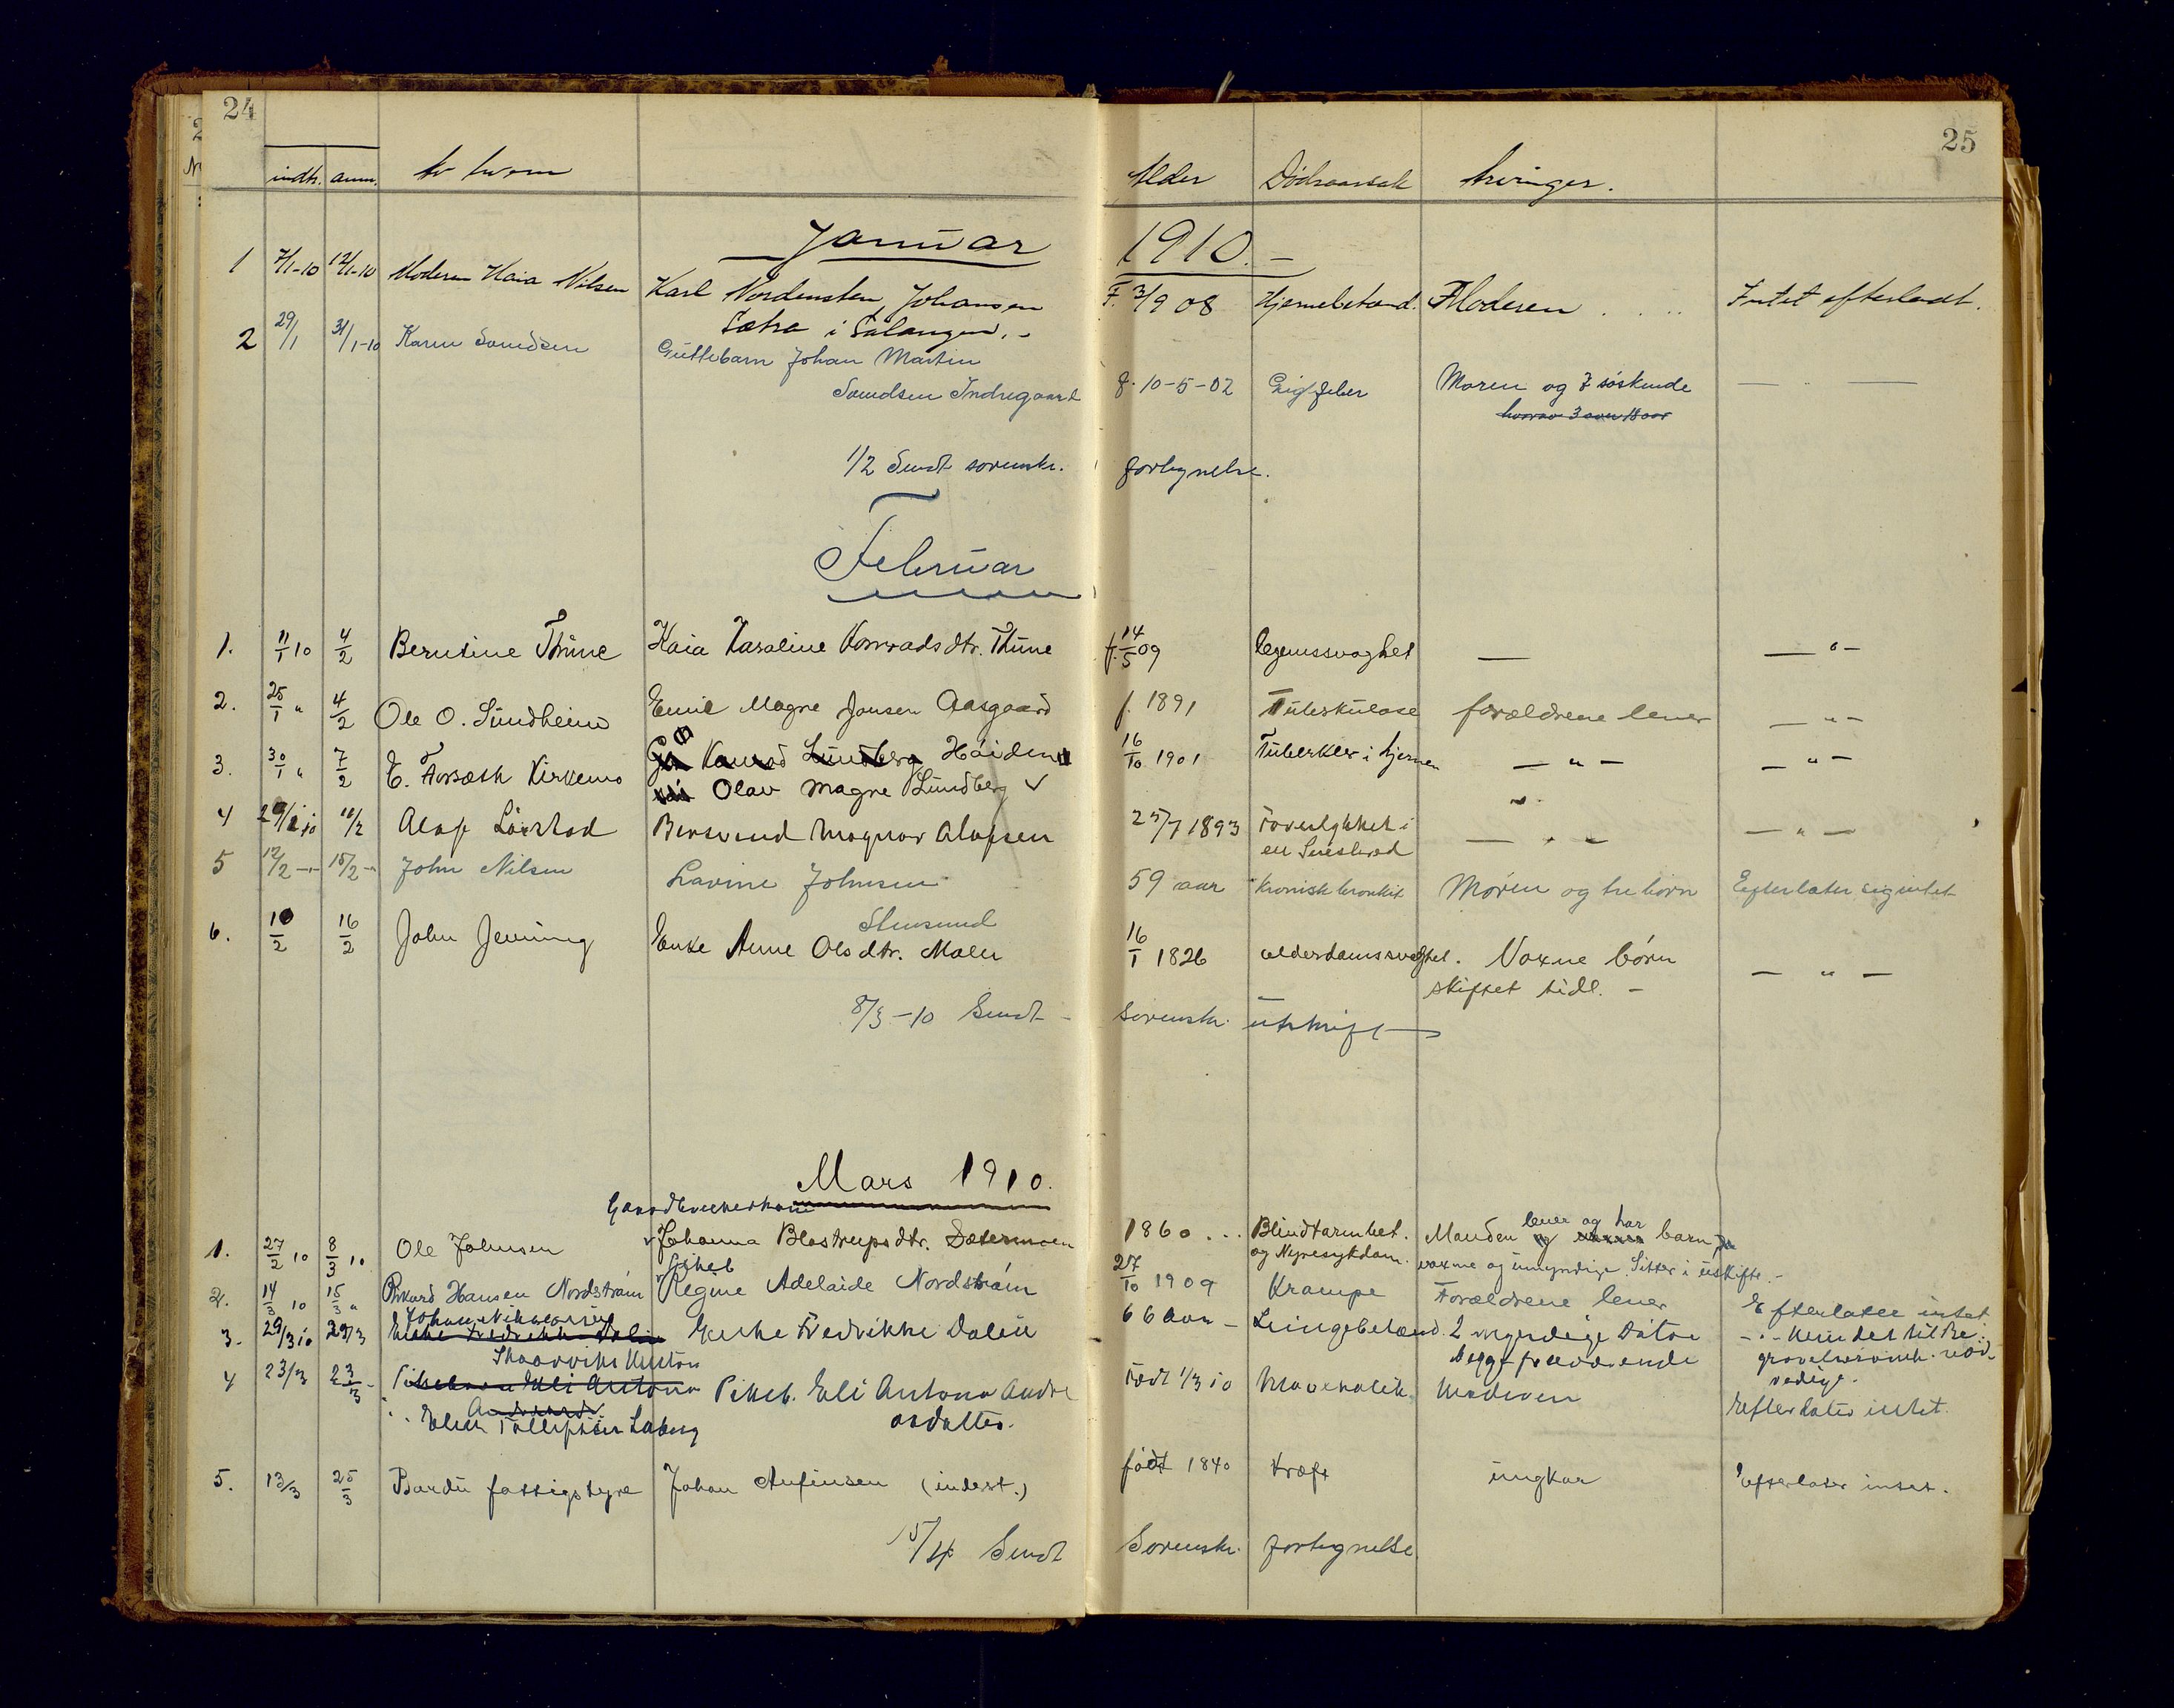 24
25
indtr. anm. Av hvem Alder Dødsaarsak Arvinger.
Januar 1910. -
1 7/1-10 12/1-10 Moderen Kaia Nilsen Karl Nordensten Johansen F. 3/9 08 Hjernebetænd. Moderen Intet efterladt.
Sætra i Salangen. -
2 29/1 31/1-10 Karen Somdsen Guttebarn Johan Martin
Somdsen Indregaard f. 10-5-02 Gigtfeber Moren og 7 søskende
hvorav 3 over 18 aar
1/2 Sendt sorenskr. fortegnelse.
Februar
1. 11/1 10 4/2 Berntine Thune Kaia Karoline Konradsdtr. Thune f. 14/5 09 legemssvaghet — — " —
2. 25/1 " 4/2 Ole O. Sundheim Emil Magne Jansen Aasgaard f. 1891 Tuberkulose forældrene lever — " —
3. 30/1 " 7/2 E. Forseth Kirkemo Konrad Lundberg Høiden 16/10 1901 Tuberkler i hjernen — " — — " —
Olav Magne Lundberg ✓
4 29/1 10 10/2 Alaf Lörstad Bersvend Magnar Alafsen 25/7 1893 Forulykket i — " — — " —
en Sneskred
5 12/2 -"- 15/2 -"- John Nilsen Lavine Johnsen 59 aar Kronisk bronkit Moren og tre børn Efterlater sig intet
Stensund
6. 10/2 16/2 John Jenning Enke Anne Olsdtr. Moen 16/1 1826 alderdomssvaghet. Voxne børn — " —
skiftet tidl. -
8/3-10 Sendt - Sorenskr. utskrift
Mars 1910.
Gaardbrukerkone
1. 27/2 10 8/3 10 Ole Johnsen Johanna Blostrupsdtr. Sætermoen 1860 ... Blindtarmbet. Manden lever og har barn
og Nyresykdom. voxne og umyndige. Sitter i uskifte. -
Pikeb
2. 14/3 10 15/3 " Rikard Hansen Nordstrøm Regine Adelaide Nordstrøm 27/10 1909 Krampe Forældrene lever Efterlater intet
Johan Nikolaisen
3. 29/3 10 29/3 Enke Fredrikke Dalen Enke Fredrikke Dalen 66 aar - Lungebetænd. 2 myndige Døtre -"- uten det til Be-
Skaarvik Kusten begge fraværende gravelsesomk. nød-
vedige.
4 23/3 23/3 - Pikebarn Eli Antona Pikeb. Eli Antona Andre Født 1/3 10 Mavekolik Moderen Efterlater intet.
Andreasd. asdatter.
Elen Tollefsen Laberg
5. 13/3 25/3 Bardu fattigstyre Johan Anfinsen (inderst.) født 1840 kræft ungkar efterlater intet.
15/4 Sendt Sorenskr. fortegnelse